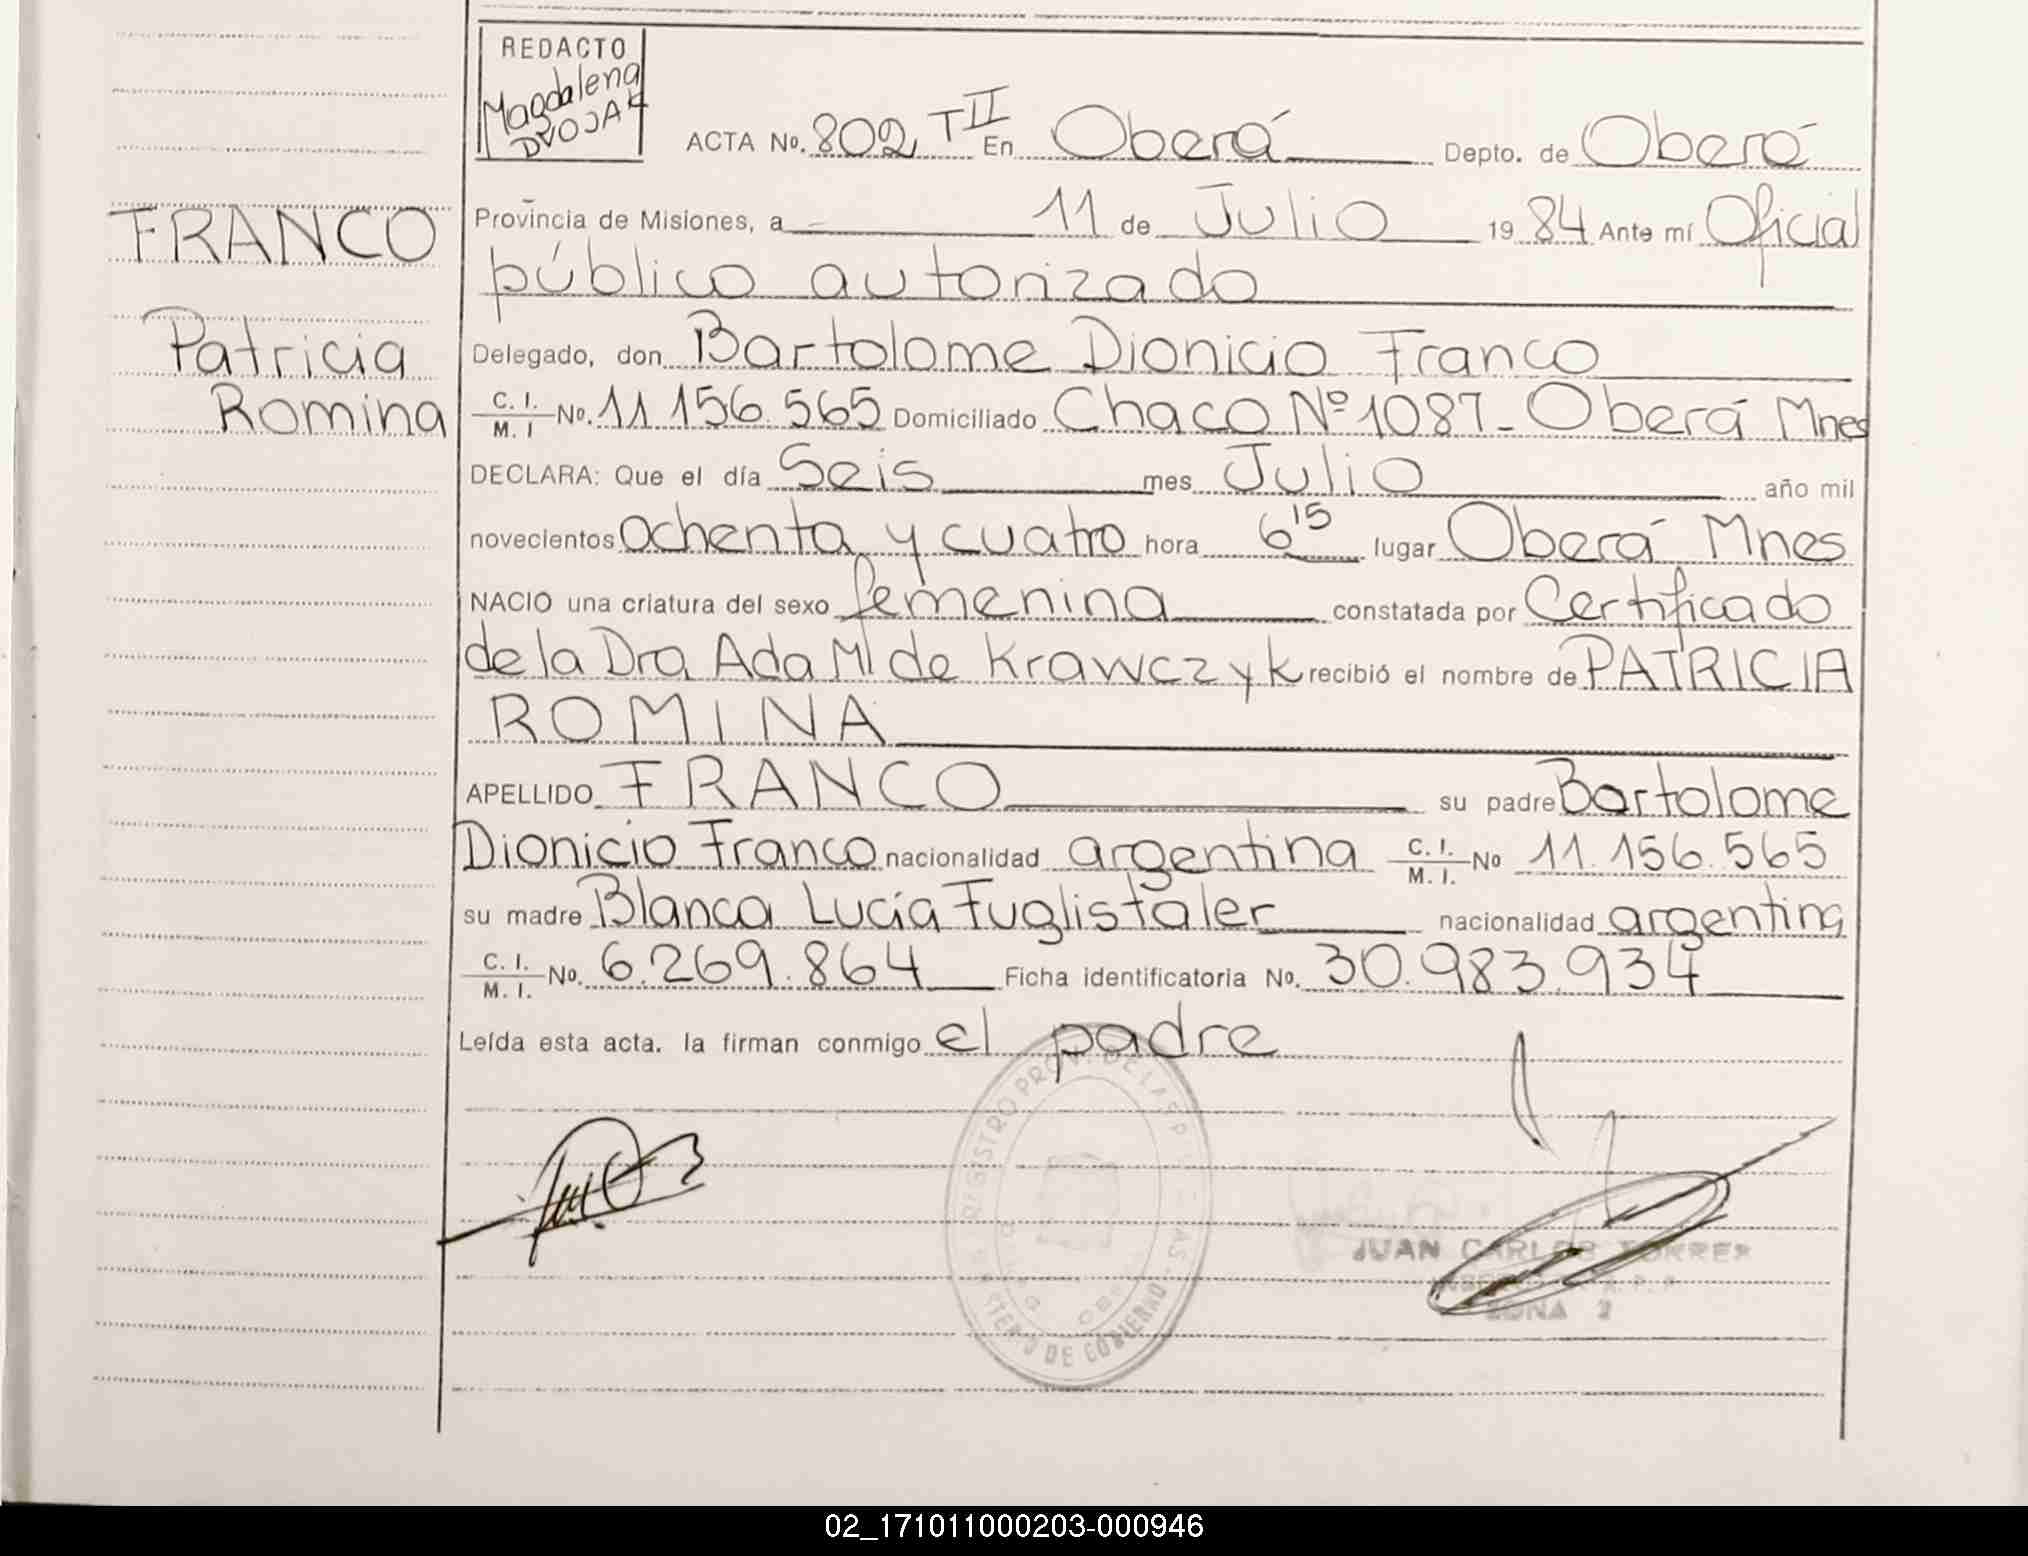 REDACTO
Magdalena
DVOJAK
ACTA No. 802 T II En Oberá Depto. de Oberá
FRANCO
Patricia
Romina
Provincia de Misiones, a 11 de Julio 1984 Ante mí Oficial
público autorizado
Delegado, don Bartolome Dionicio Franco
C. I. / M. I No. 11.156.565 Domiciliado Chaco Nº 1087 - Oberá Mnes
DECLARA: Que el día Seis mes Julio año mil
novecientos ochenta y cuatro hora 6 15 lugar Oberá Mnes
NACIO una criatura del sexo femenina constatada por Certificado
de la Dra Ada M de Krawczyk recibió el nombre de PATRICIA
ROMINA
APELLIDO FRANCO su padre Bartolome
Dionicio Franco nacionalidad argentina C. I. / M. I. No 11.156.565
su madre Blanca Lucía Fuglistaler nacionalidad argentina
C. I. / M. I. No. 6.269.864 Ficha identificatoria No. 30.983.934
Leída esta acta. la firman conmigo el padre
REGISTRO PROV. DE LAS P
DE GOBIERNO
JUAN CARLOS TORRES
ZONA 2
02_171011000203-000946